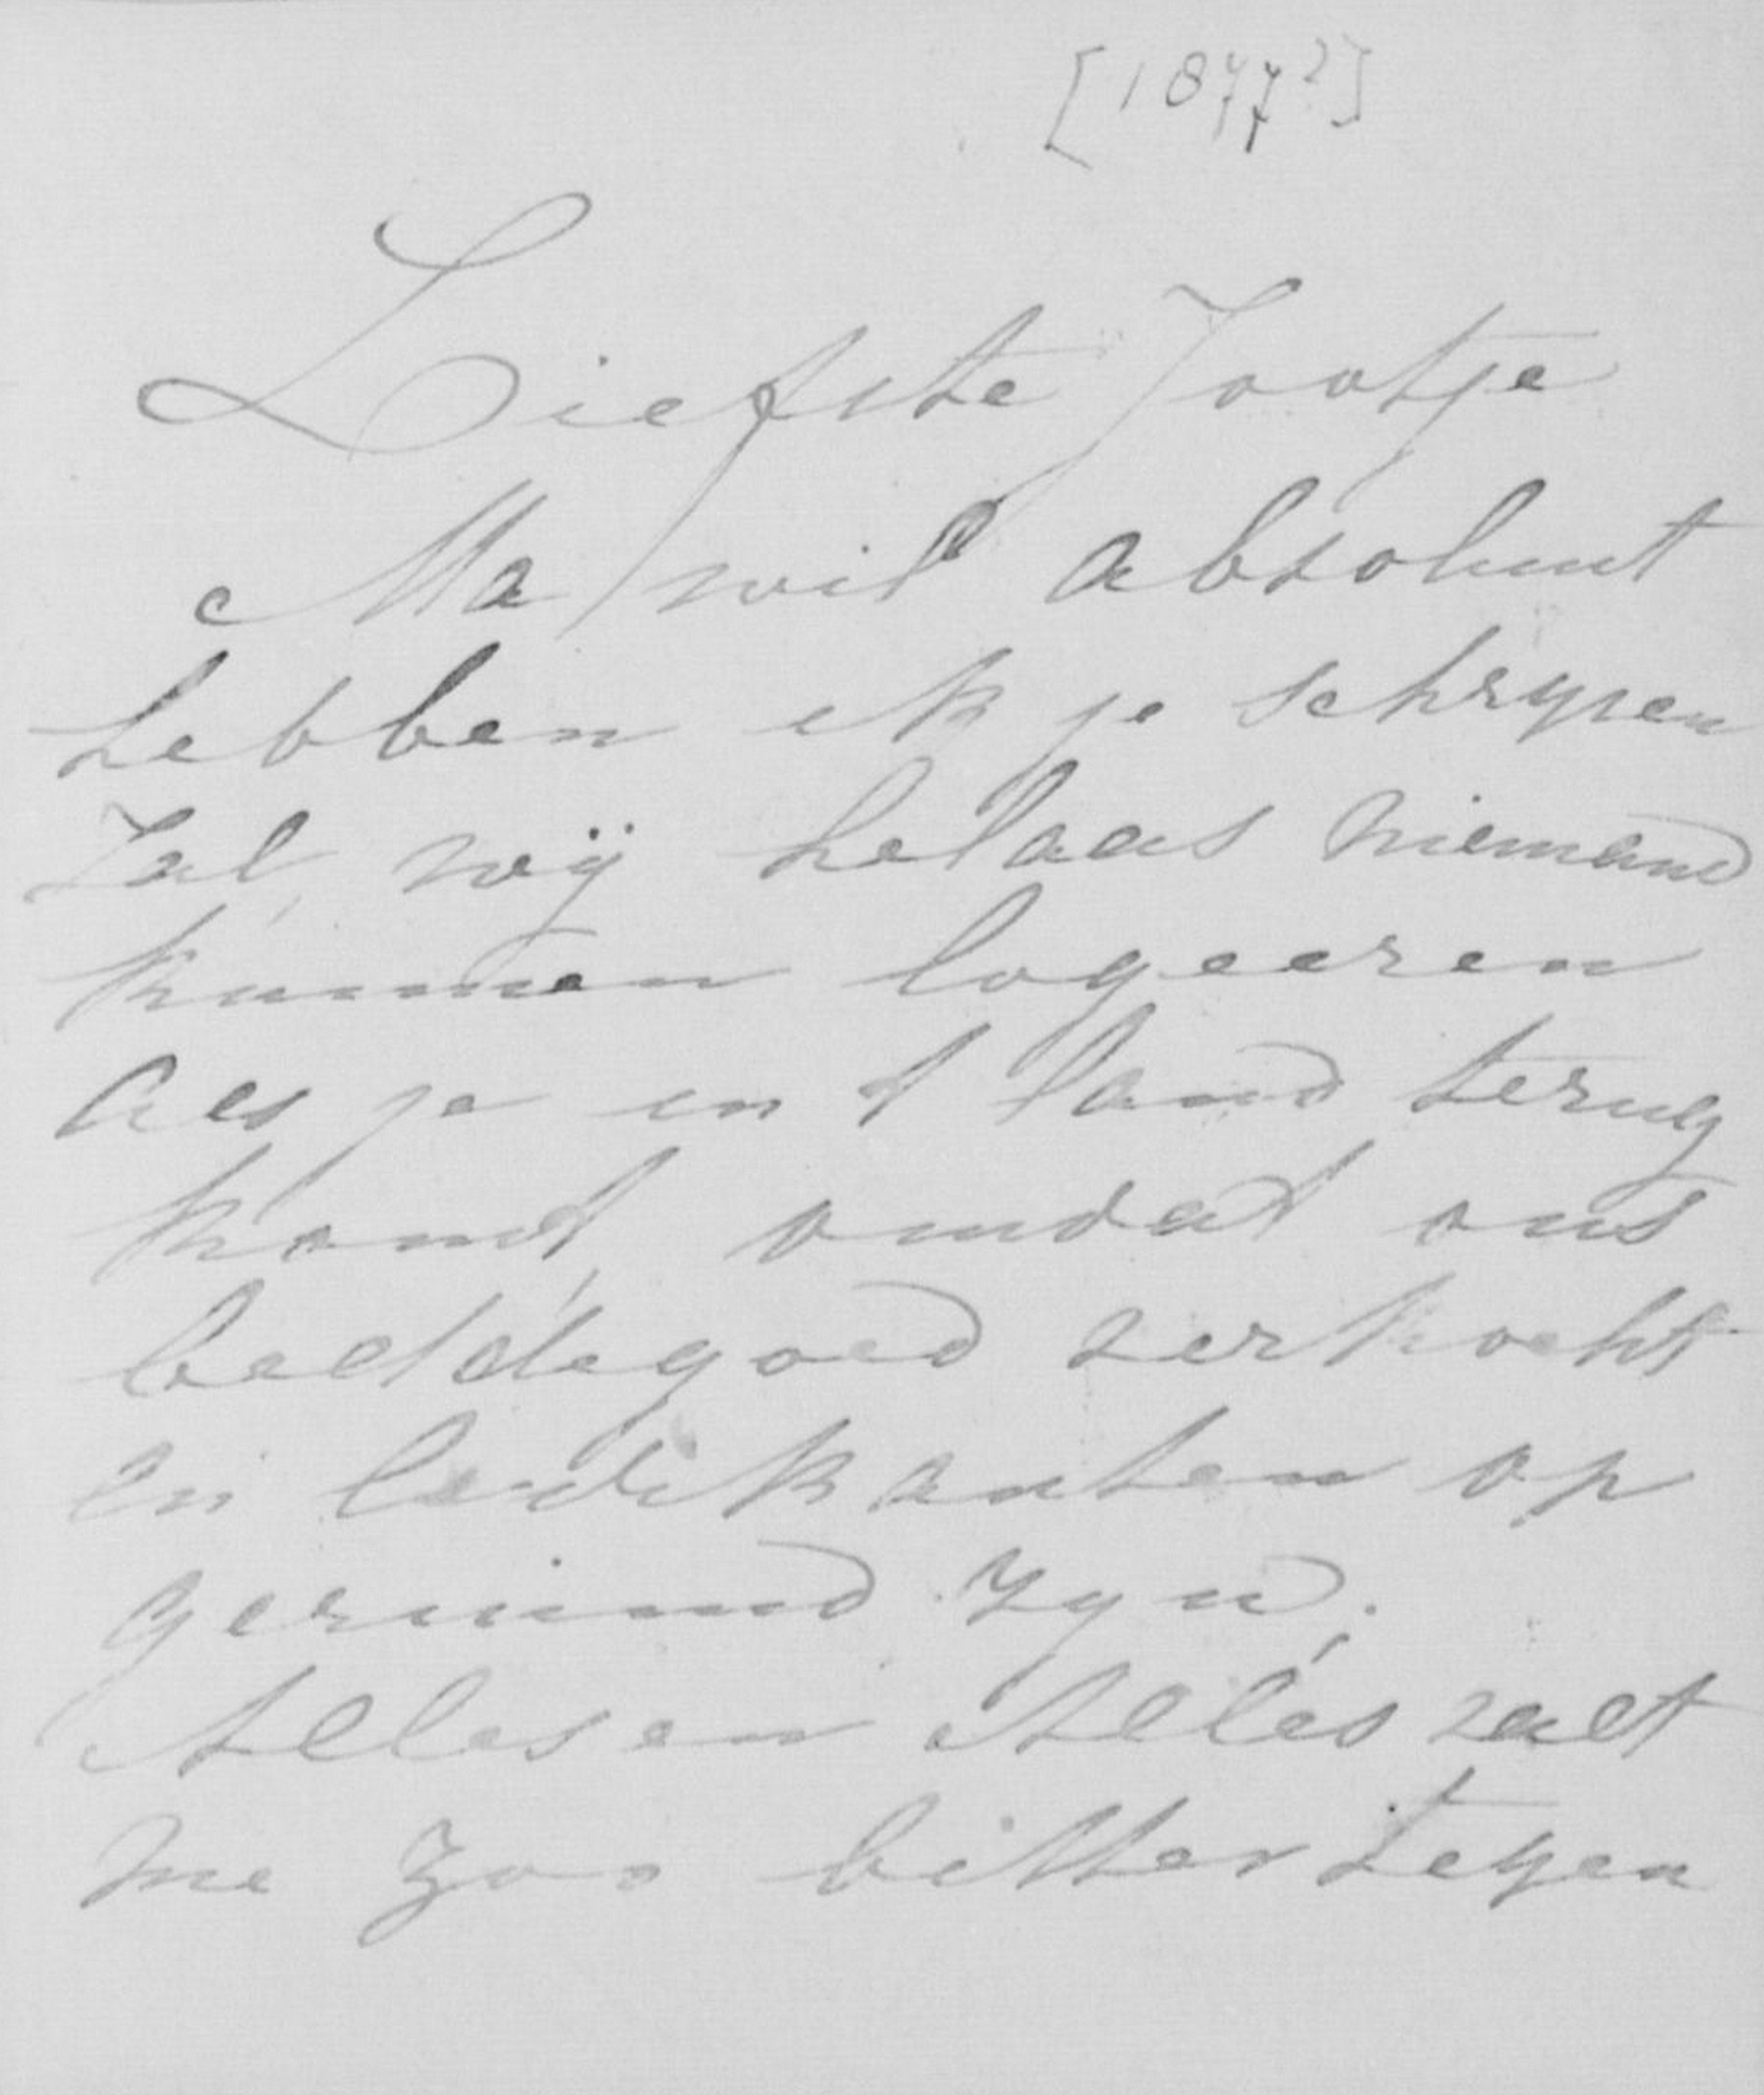 [1877?]
Liefste Jootje
Ma wil absoluut
hebben ik je schryven
zal, wij helaas niemand
kunnen logeeren
als je in t land terug
komt, omdat ons
beddegoed verkocht
en ledikanten op
geruimd zyn.
Alles en Alles valt
me zoo bitter tegen